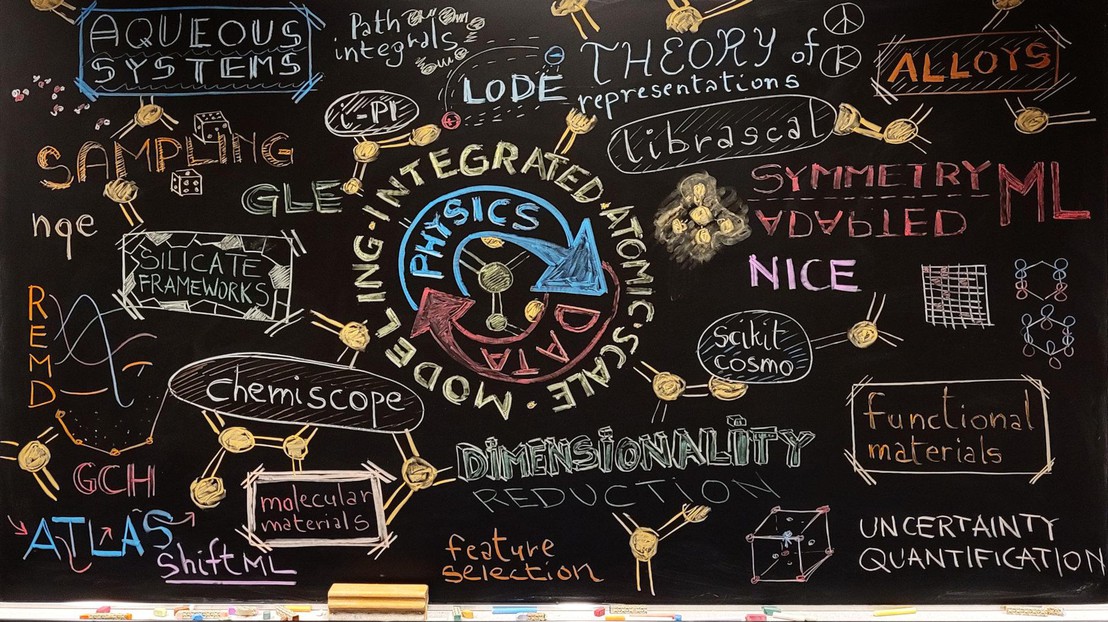 AQUEOUS
SYSTEMS
Path
integrals
LODE
THEORY of
representations
ALLOYS
i-PI
librascal
SAMPLING
GLE
SYMMETRY
ADAPTED
ML
nqe
SILICATE
FRAMEWORKS
INTEGRATED·ATOMIC·SCALE·MODELING·
PHYSICS
DATA
NICE
REMD
scikit
cosmo
chemiscope
functional
materials
DIMENSIONALITY
REDUCTION
GCH
molecular
materials
ATLAS
ShiftML
feature
selection
UNCERTAINTY
QUANTIFICATION